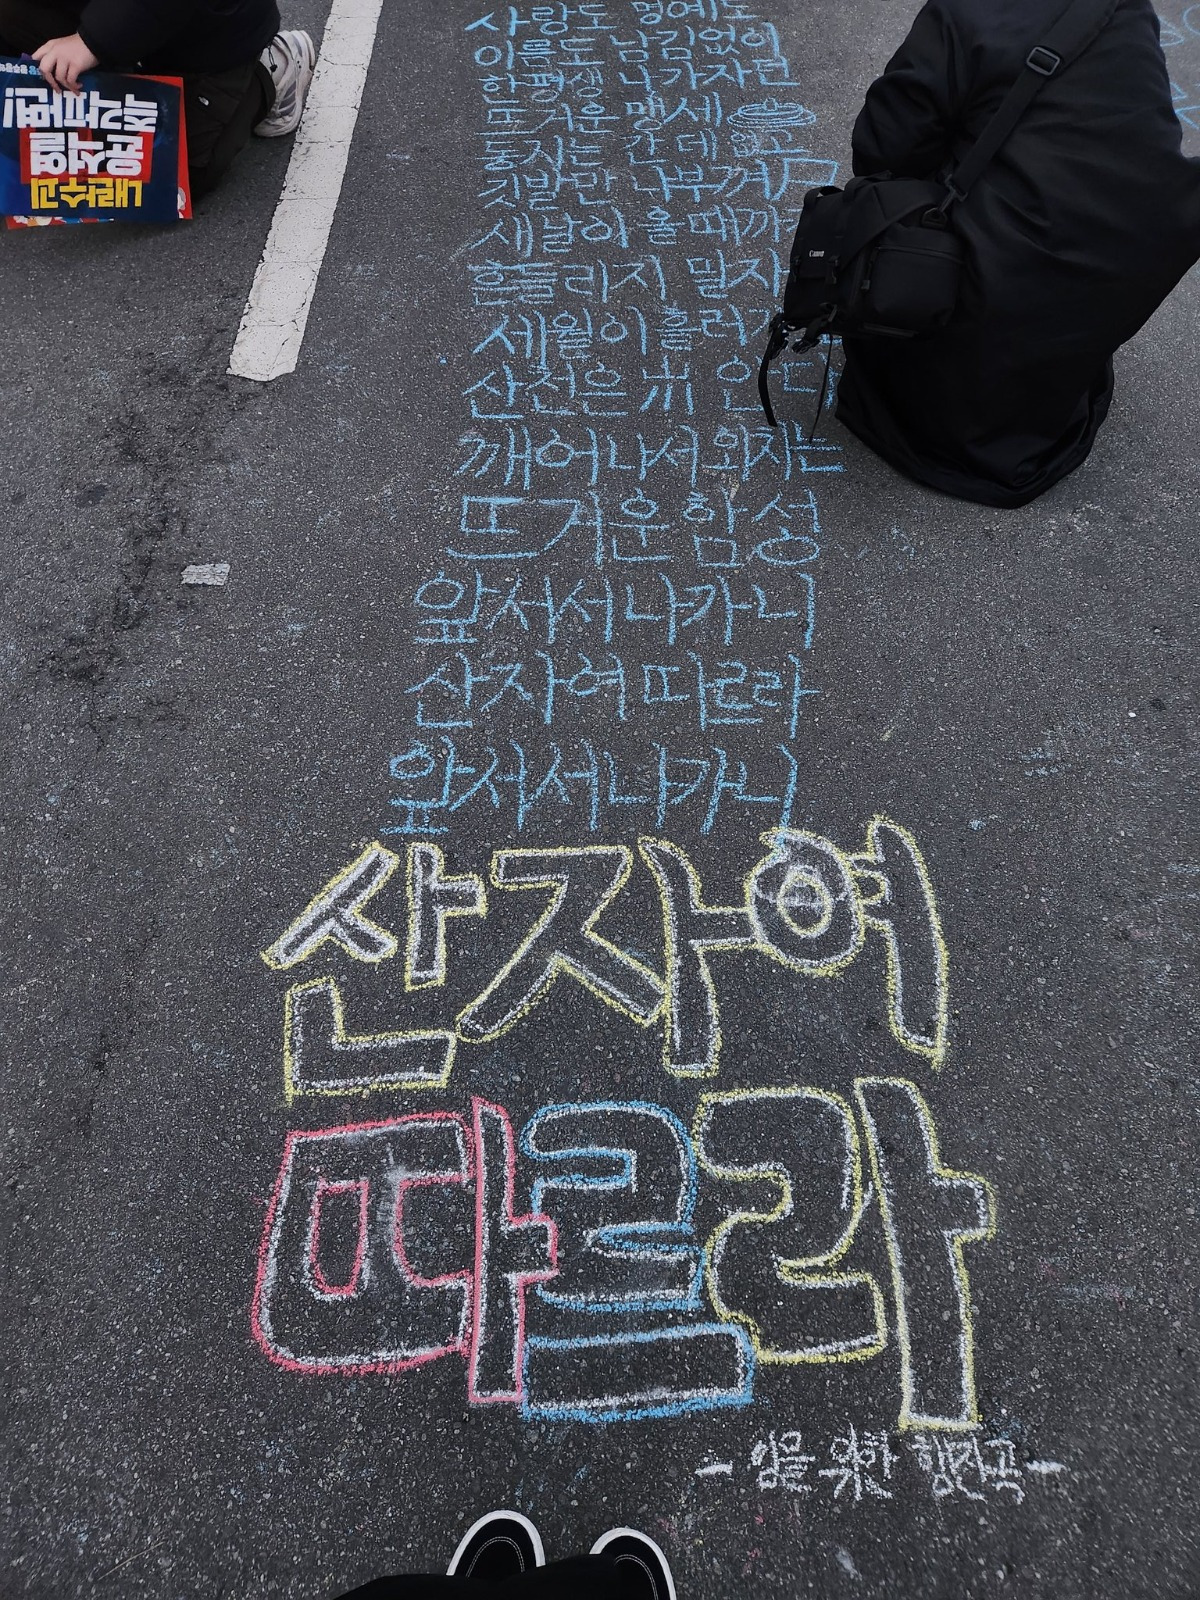 사랑도 명예도
이름도 남김없이
한평생 나가자던
뜨거운 맹세
동지는 간데없고
깃발만 나부껴
새날이 올때까지
흔들리지 말자
세월이 흘러가
산천은 안다
깨어나서 외치는
뜨거운 함성
앞서서 나가니
산자여 따르라
앞서서 나가니
산자여
따르라
- 임을 위한 행진곡 -
내란수괴
윤석열
즉각파면!
Canon